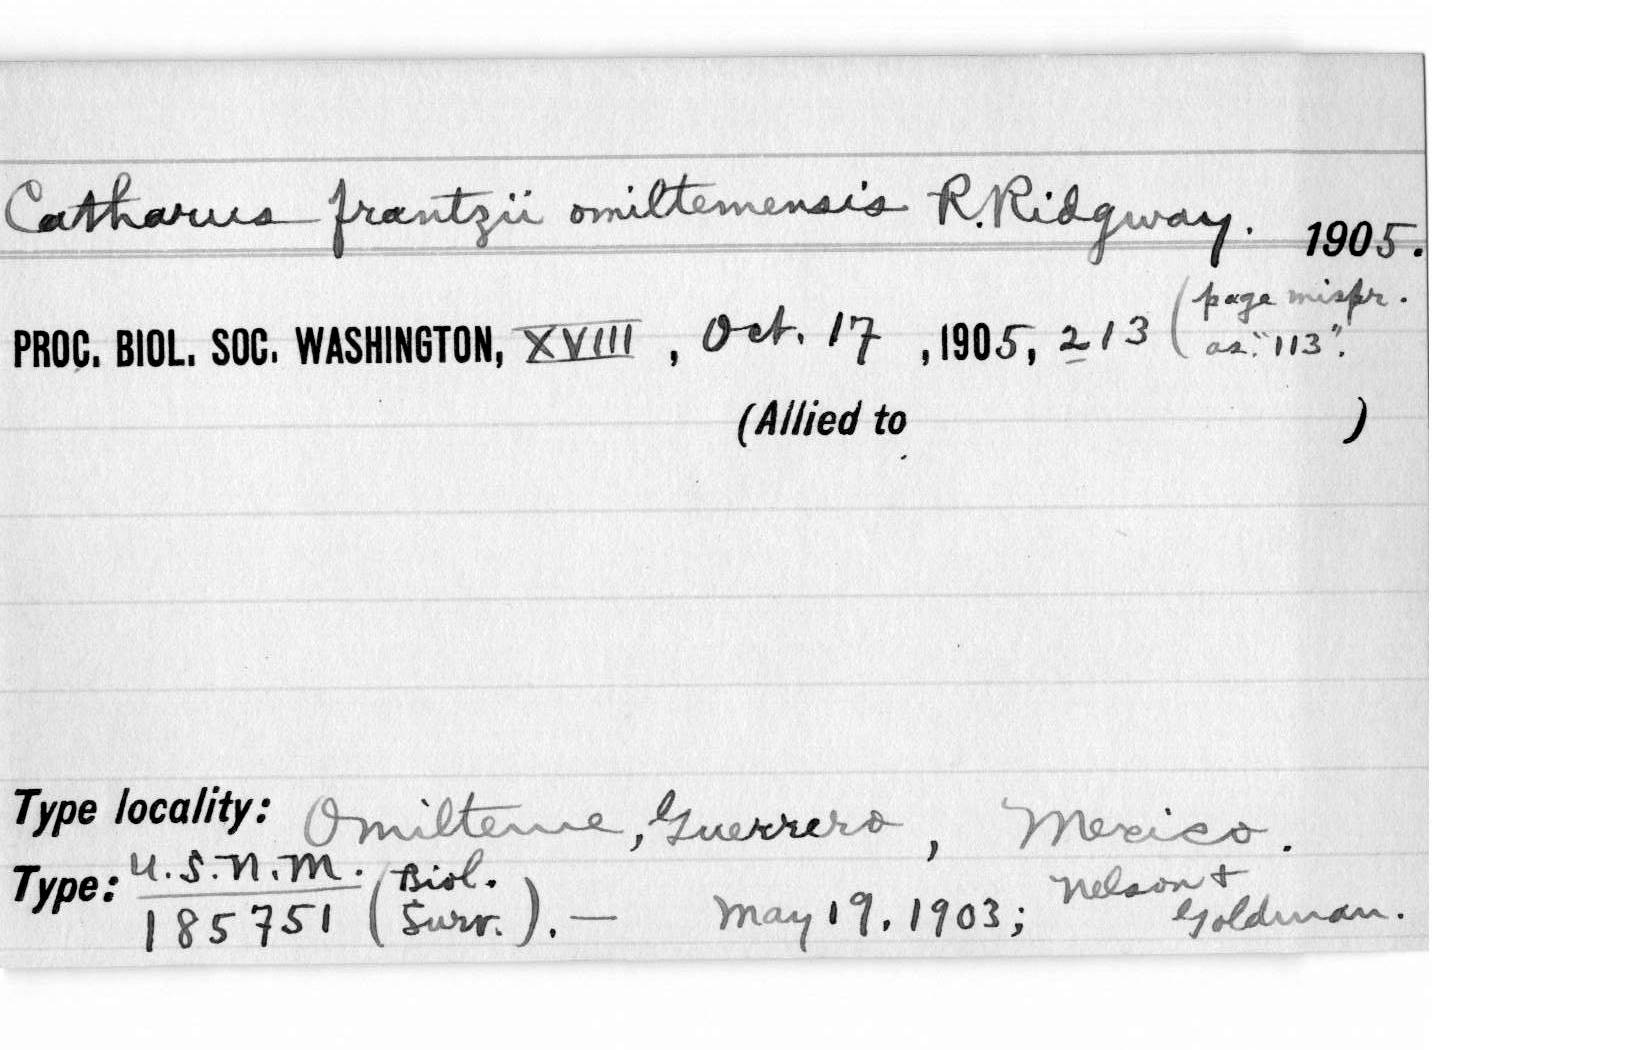 Catharus frantzii omiltemensis R. Ridgway. 1905.
PROC. BIOL. SOC. WASHINGTON, XVIII, Oct. 17, 1905, 213 (page mispr. as "113".
(Allied to )
Type locality: Omilteme, Guerrero, Mexico.
Type: U.S.N.M. 185751 (Biol. Surv.). — May 19, 1903; Nelson & Goldman.